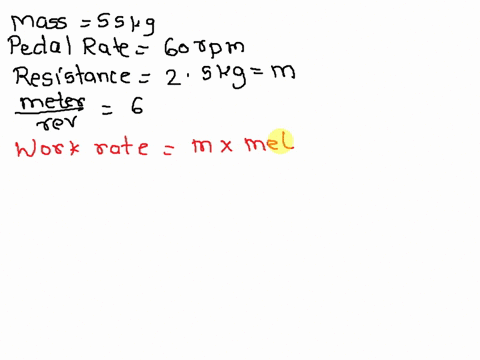 Mass = 55kg
Pedal Rate = 60 rpm
Resistance = 2.5kg = m
meter/rev = 6
Work rate = m x mel